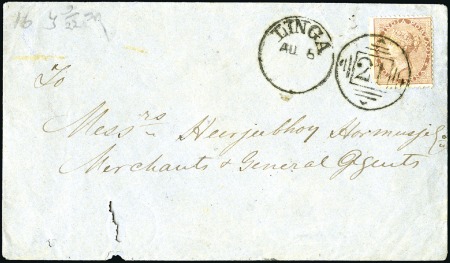 16
LINGA
AU 6
2
To
Messrs Heerjeebhoy Hormusjee & Co
Merchants & General Agents